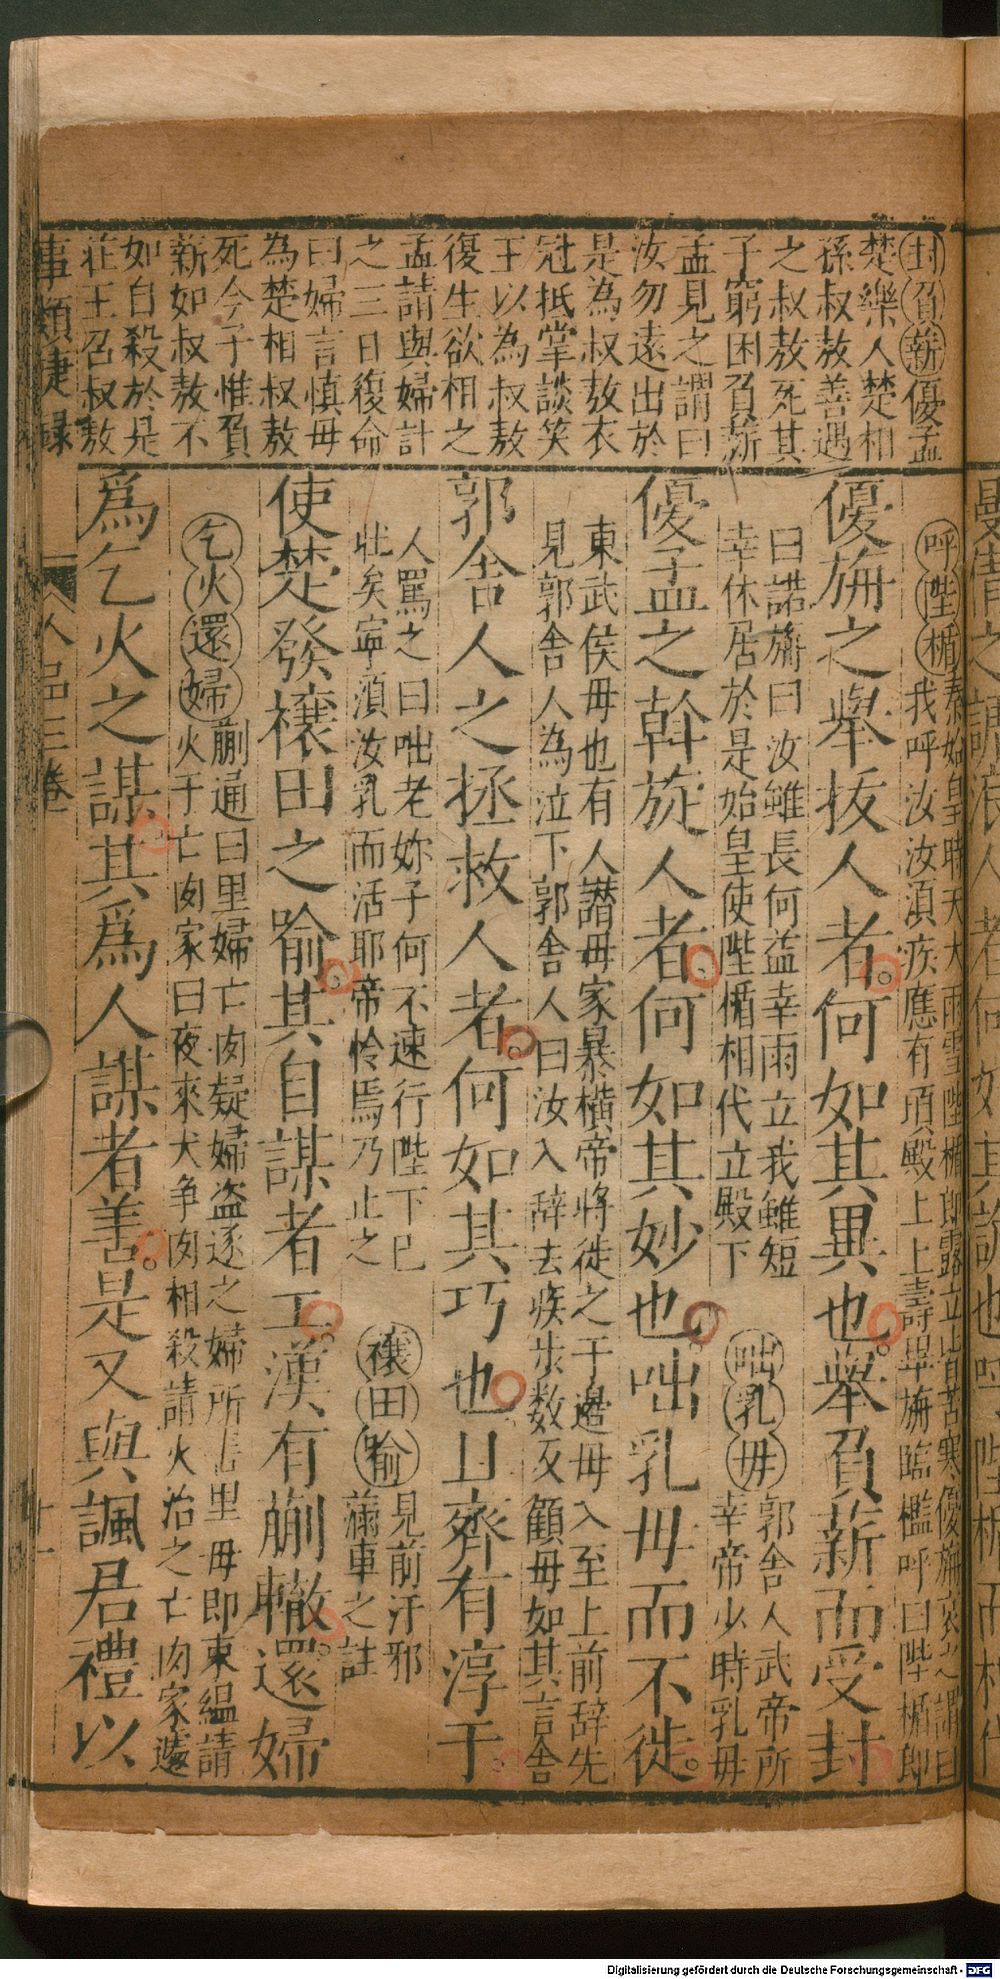 封負薪優孟
楚樂人楚相
孫叔敖善遇
之叔敖死其
子窮困負薪
孟見之謂曰
汝勿遠出於
是為叔敖衣
冠抵掌談笑
王以為叔敖
復生欲相之
孟請與婦計
之三日復命
曰婦言慎毋
為楚相叔敖
死今子惟負
薪如叔敖不
如自殺於是
莊王召叔敖
事類捷錄
呼陛楯秦始皇時天大雨雪陛楯郎露立皆苦寒優旃哀之謂曰
我呼汝汝湏疾應有項殿上上壽畢旃臨檻呼曰陛楯郎
優旃之舉拔人者何如其異也舉負薪而受封
曰諾旃曰汝雖長何益幸雨立我雖短
幸休居於是始皇使陛楯相代立殿下
咄乳毋郭舍人武帝所
幸帝少時乳毋
優孟之幹旋人者何如其妙也咄乳毋而不徙
東武侯毋也有人譖毋家暴橫帝將徙之于邉毋入至上前辞先
見郭舍人為泣下郭舍人曰汝入辞去疾步数反顧毋如其言舍
郭舍人之拯救人者何如其巧也且齊有淳于
人罵之曰咄老妳子何不速行陛下已
壯矣寧湏汝乳而活耶帝怜焉乃止之
禳田喻見前汙邪
滿車之註
使楚發禳田之喻其自謀者工漢有蒯轍還婦
乞火還婦蒯通曰里婦亡肉疑婦盗逐之婦所善里毋即束緼請
火于亡肉家曰夜來犬争肉相殺請火治之亡肉家遽
爲乞火之謀其爲人謀者善是又與諷君禮以
人品三卷
十一
Digitalisierung gefördert durch die Deutsche Forschungsgemeinschaft - DFG